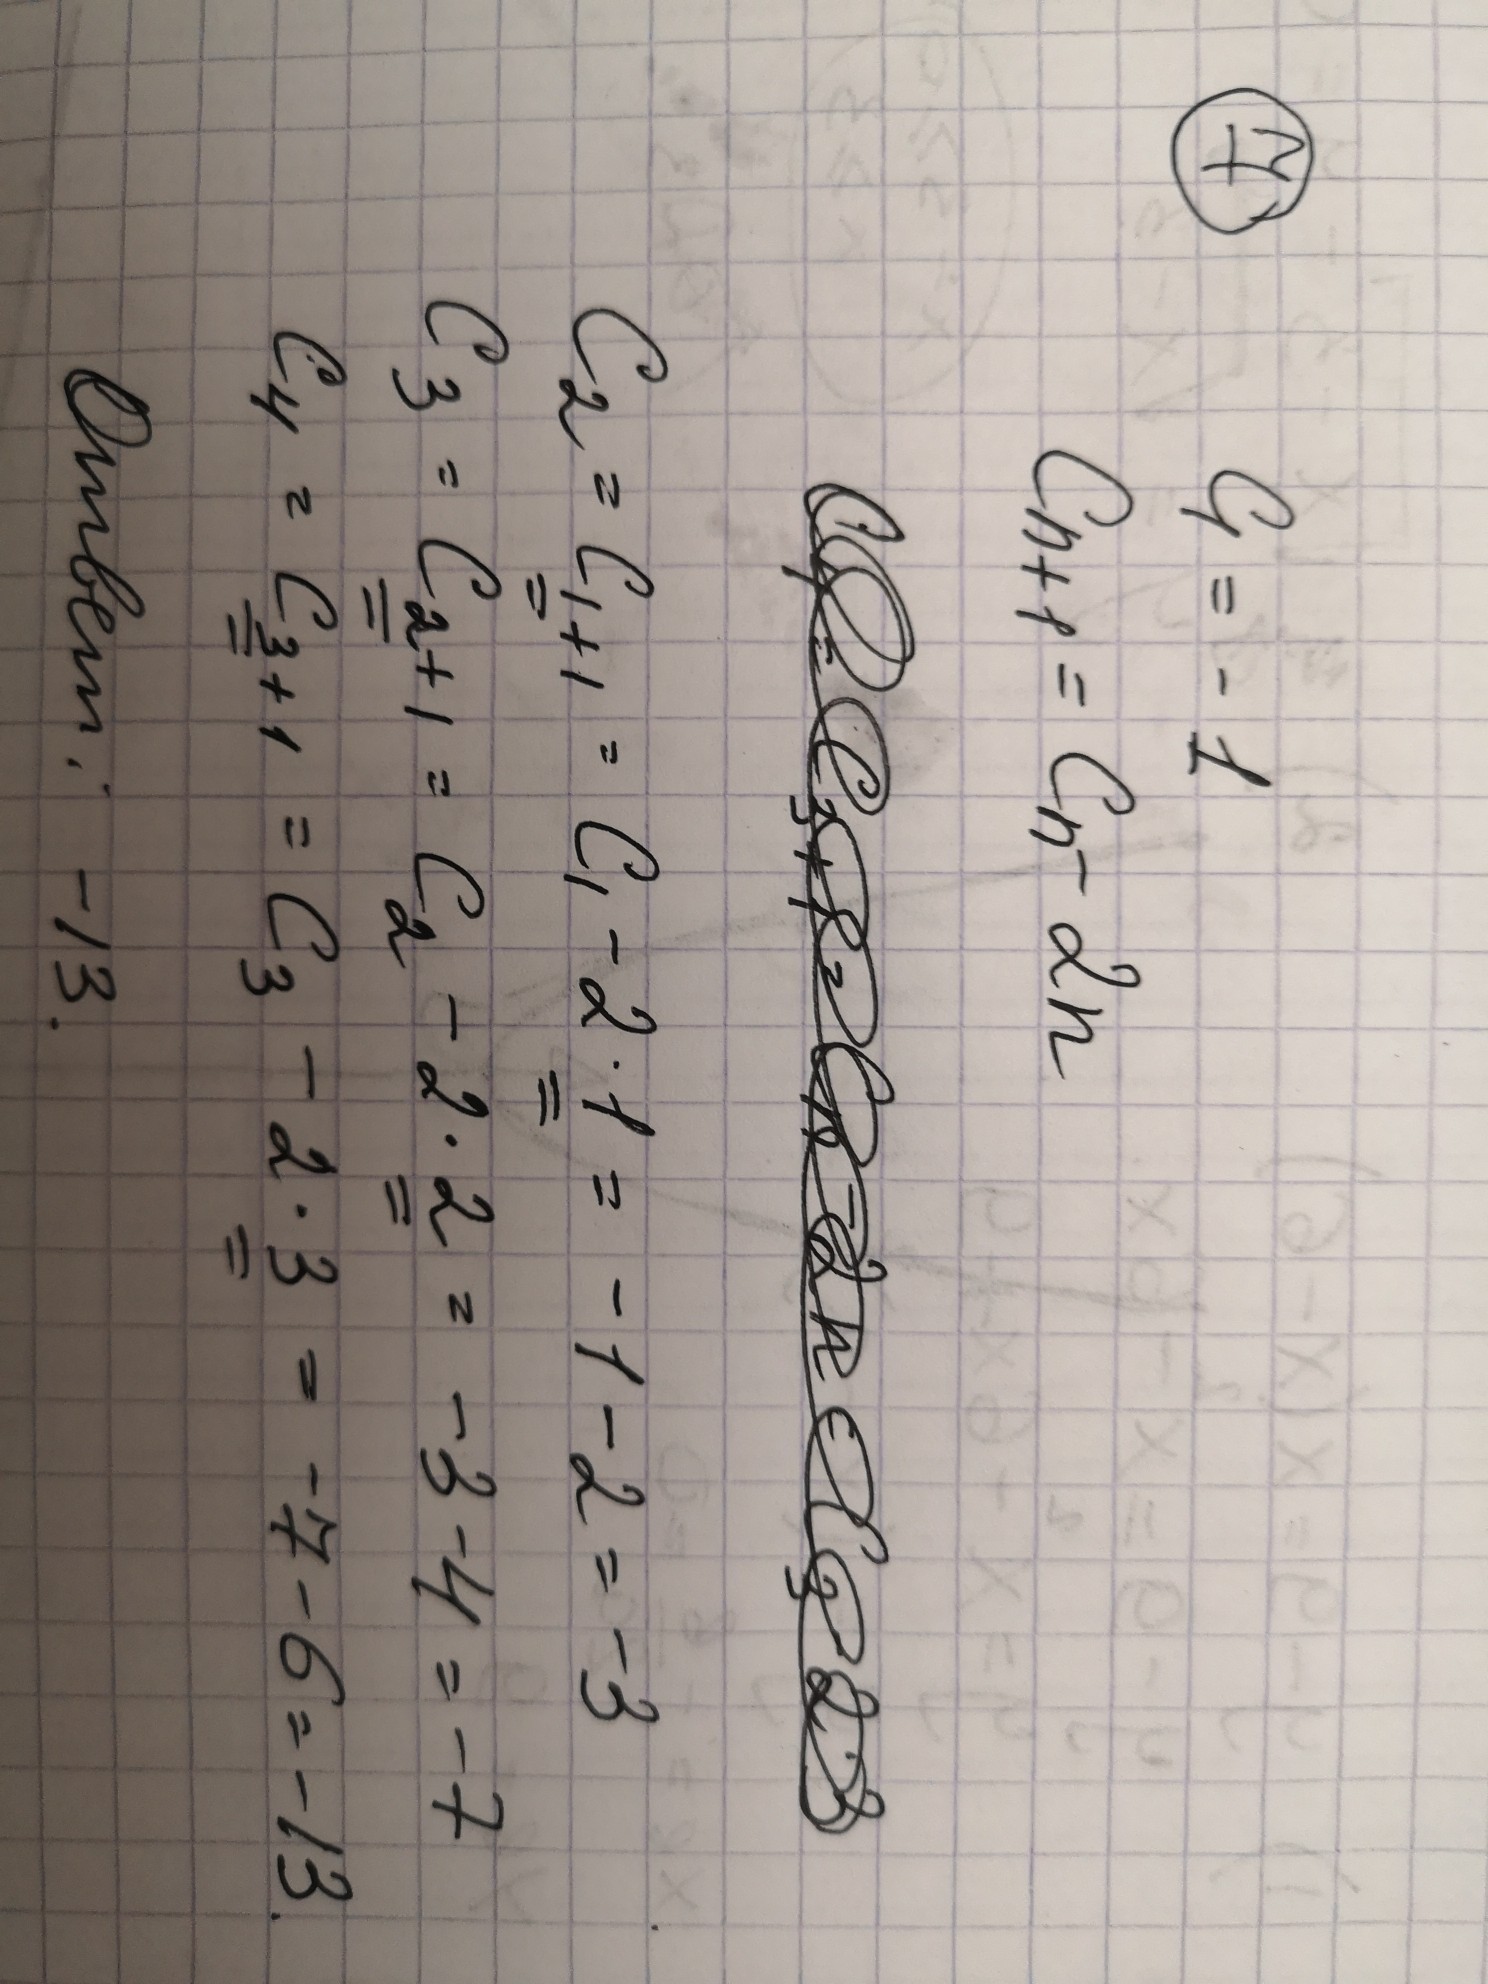 №7
C₁ = -1
Cₙ₊₁ = Cₙ - 2n
C₂ = C₁₊₁ = C₁ - 2·1 = -1 - 2 = -3
C₃ = C₂₊₁ = C₂ - 2·2 = -3 - 4 = -7
C₄ = C₃₊₁ = C₃ - 2·3 = -7 - 6 = -13.
Ответ: -13.